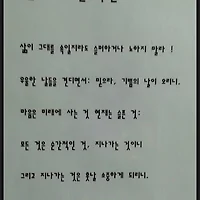 삶이 그대를 속일지라도 슬퍼하거나 노하지 말라 !
우울한 날들을 견디면서: 믿으라, 기쁨의 날이 오리니.
마음은 미래에 사는 것 현재는 슬픈 것:
모든 것은 순간적인 것, 지나가는 것이니
그리고 지나가는 것은 훗날 소중하게 되리니.